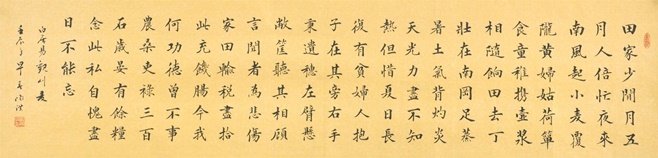 田家少閒月五
月人倍忙夜來
南風起小麥覆
隴黃婦姑荷簞
食童稚攜壺漿
相隨餉田去丁
壯在南岡足蒸
暑土氣背灼炎
天光力盡不知
熱但惜夏日長
復有貧婦人抱
子在其旁右手
秉遺穗左臂懸
敝筐聽其相顧
言聞者為悲傷
家田輸稅盡拾
此充飢腸今我
何功德曾不事
農桑吏祿三百
石歲晏有餘糧
念此私自愧盡
日不能忘
白居易觀刈麥
壬辰早春